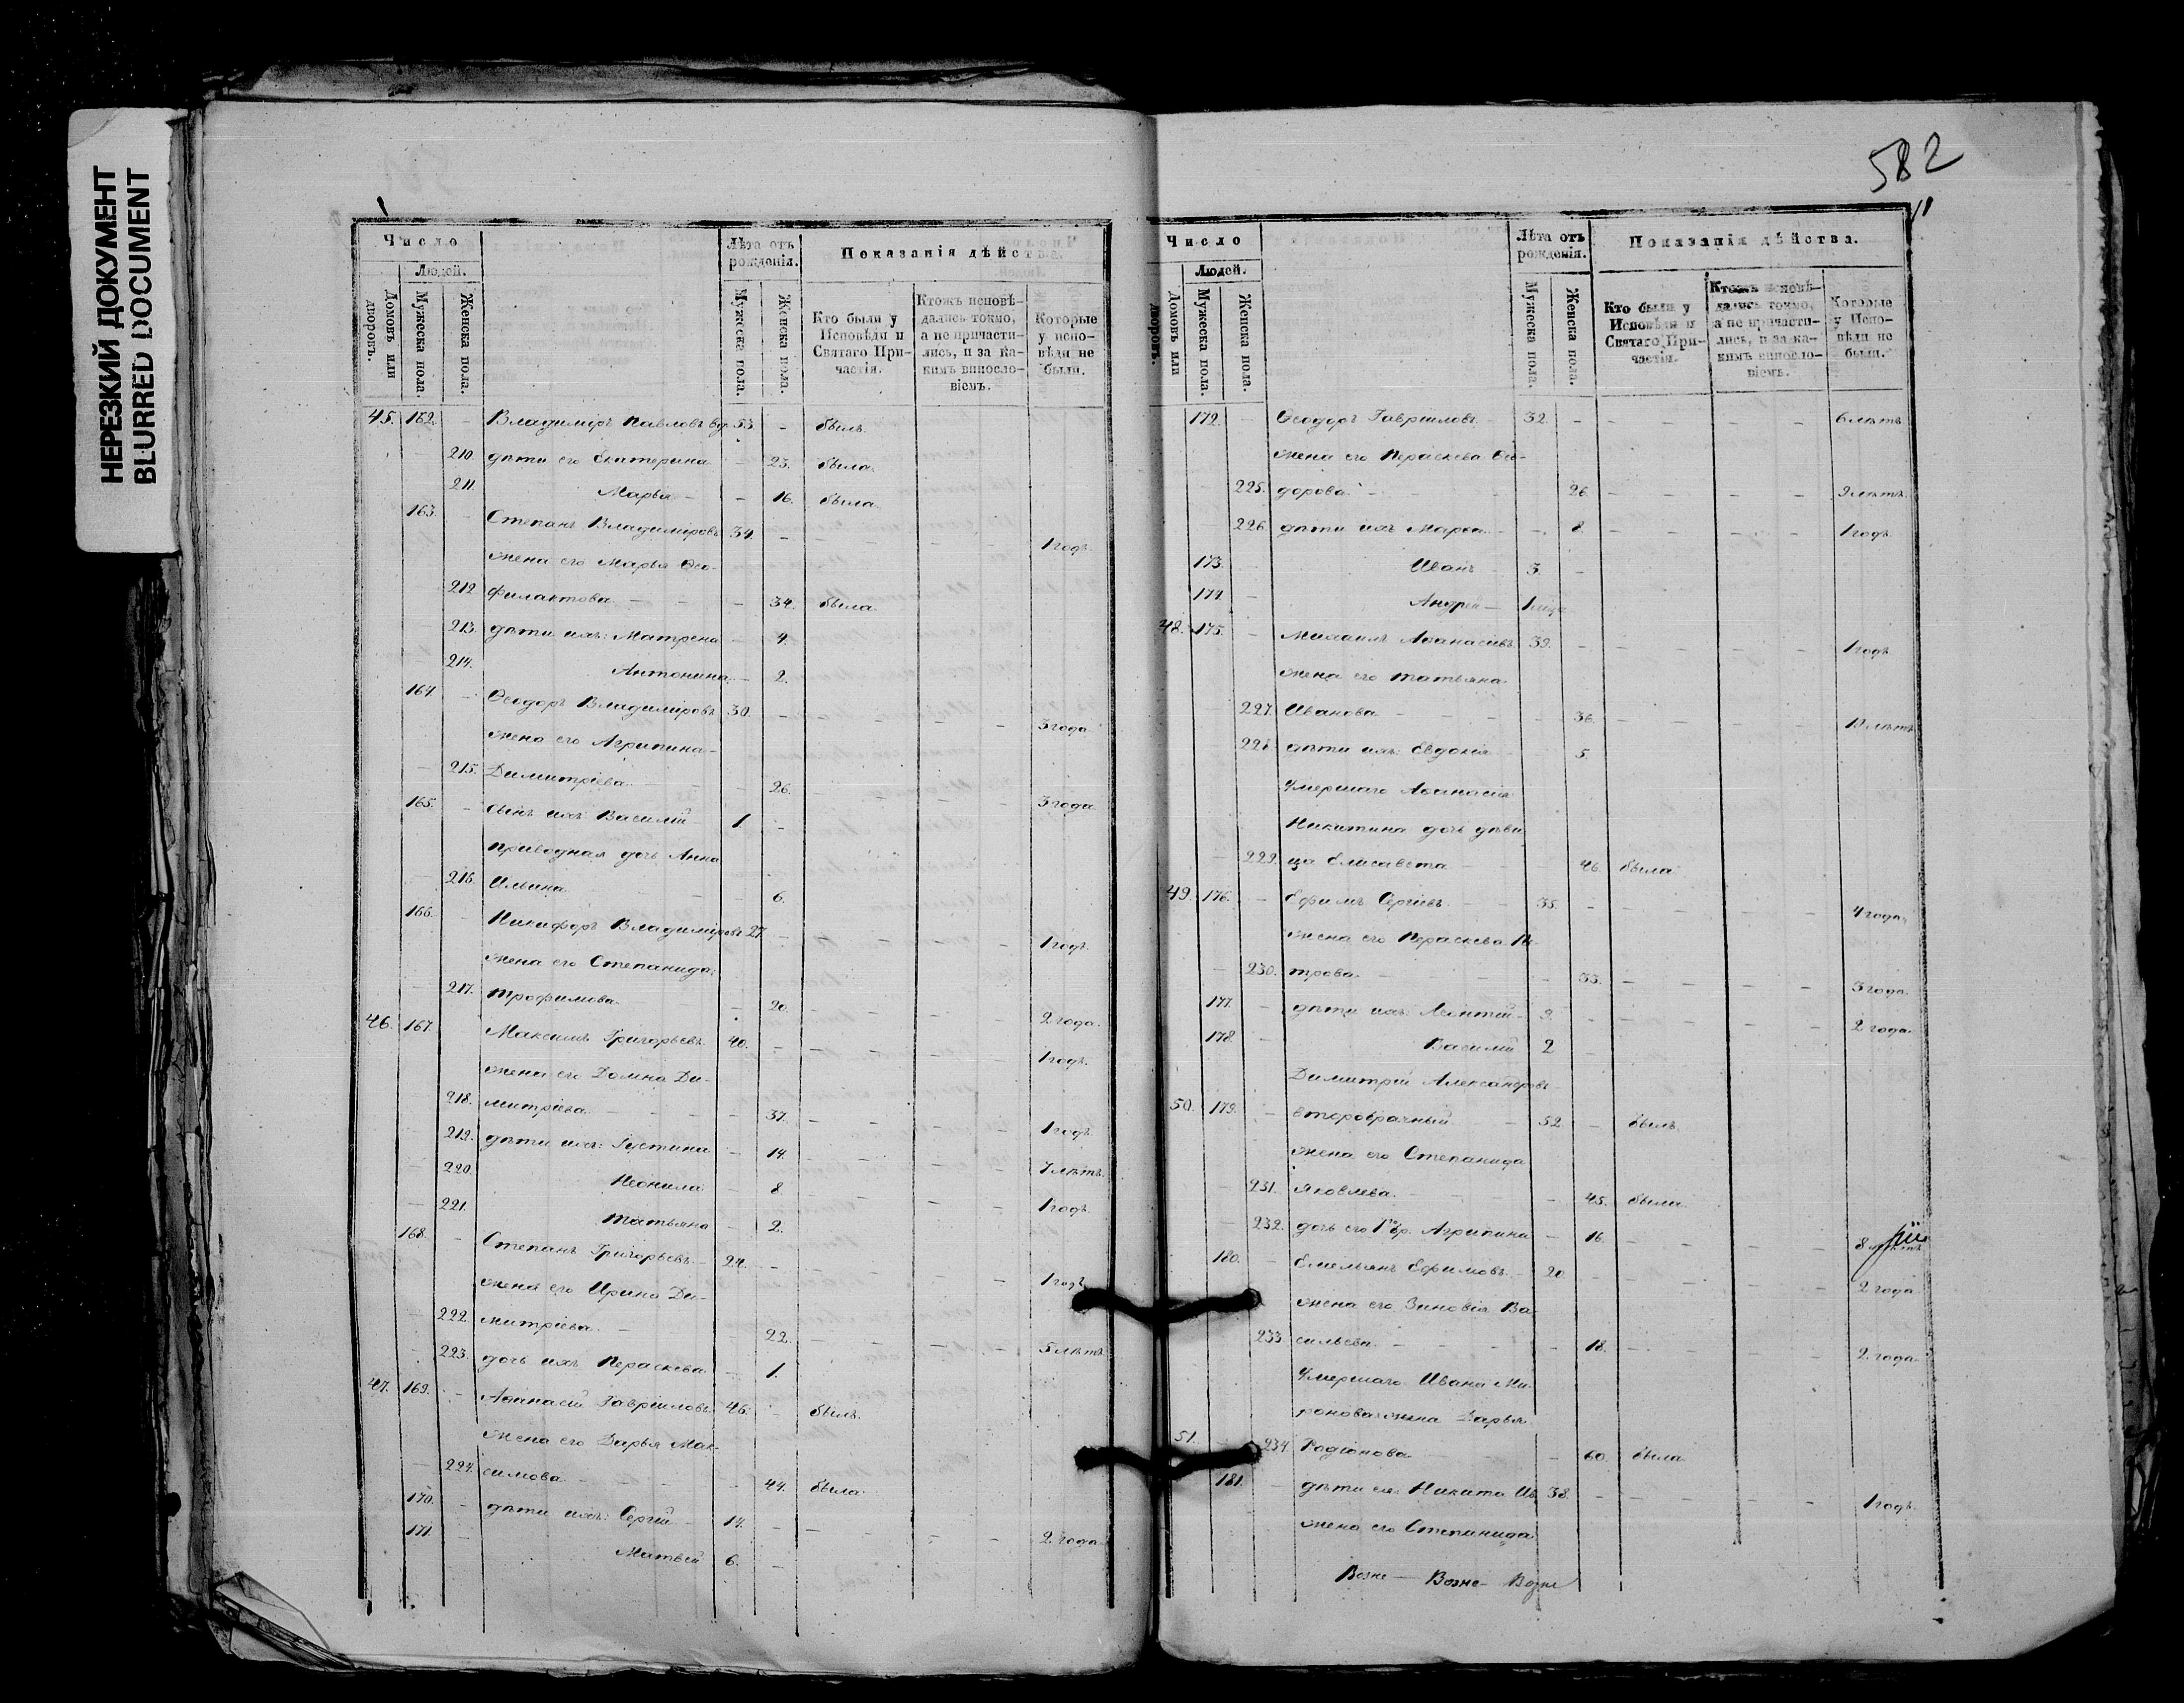 НЕРЕЗКИЙ ДОКУМЕНТ
BLURRED DOCUMENT
Число
Людей.
Домовъ или дворовъ.
Мужеска пола.
Женска пола.
Лѣта отъ рожденія.
Мужеска пола.
Женска пола.
Показанія дѣйства.
Кто были у Исповѣди и Святаго Причастія.
Ктожъ исповѣдались токмо, а не причастились, и за какимъ винословіемъ.
Которые у исповѣди не были.
45. 162. — Владиміръ Павловъ вд. 53. — былъ.
210. дѣти его Екатерина — 23. была.
211. Марья — — 16. была
163. — Степанъ Владиміровъ 34. — — — — — 1 годъ.
жена его Марья Ѳео-
212. филактова — — — 34. была
213. дѣти ихъ: Матрена — 4.
214. Антонина — 2.
164. — Ѳеодоръ Владиміровъ 30. — — — — — 3 года
жена его Агрипина
215. Димитріева — — 26. — — — — 3 года
165. — сынъ ихъ Василій 1. —
приводная дочь Анна
216. Ильина — — — 6.
166. — Никифоръ Владиміровъ 27. — — — — — 1 годъ.
жена его Степанида
217. Трофимова — — 20. — — — — 2 года.
46. 167. Максимъ Григорьевъ 40. — — — — — 1 годъ.
жена его Домна Ди-
218. митріева — — — — 37. — — — — 1 годъ
219. дѣти ихъ: Густина — 14. — — — — 7 лѣтъ.
220. Неонила — 8. — — — — 1 годъ.
221. Татьяна — 2.
168. — Степанъ Григорьевъ — 24. — — — — — 1 годъ
жена его Ирина Ди-
222. митріева — — 22. — — — — 5 лѣтъ.
223. дочь ихъ Пераскева — 1.
47. 169. — Аѳанасій Гавріиловъ 46. — былъ.
жена его Дарья Мак-
224. симова — — — — 44. была
170. — дѣти ихъ: Сергій — 14. — — — — — 2 года
171. — Матвей 6. —
582
Число
Людей.
Домовъ или дворовъ.
Мужеска пола.
Женска пола.
Лѣта отъ рожденія.
Мужеска пола.
Женска пола.
Показанія дѣйства.
Кто были у Исповѣди и Святаго Причастія.
Ктожъ исповѣдались токмо, а не причастились, и за какимъ винословіемъ.
Которые у Исповѣди не были.
172. — Ѳеодоръ Гавріиловъ — 32. — — — — — 6 лѣтъ
жена его Пераскева Ѳео-
225. дорова — — — 26. — — — — 9 лѣтъ.
226. дѣти ихъ Марѳа — — 8. — — — — 1 годъ
173. — Иванъ 3. —
174. — Андрей — 1
48. 175. — Михаилъ Аѳанасіевъ 39. — — — — — 1 годъ
жена его Татьяна
227. Иванова — — — — 36. — — — —
228. дѣти ихъ: Евдокія — 5.
Умершаго Аѳанасія
Никитина дочь дѣви
229. ца Елисавета — — 46. была
49. 176. — Ефимъ Сергіевъ — — 35. — — — — — 4 года
жена его Пераскева Пе-
230. трова — — — — 33. — — — — 3 года.
177. — дѣти ихъ: Леонтій — 9. — — — — — 2 года.
178. — Василій 2 —
Димитрій Александровъ
50. 179. — второбрачный — 52. — былъ.
жена его Степанида
231. Яковлева — — — — 45. была.
232. дочь его 1го бр. Агрипина — 16. — — — — 8 лѣтъ
180. — Емельянъ Ефимовъ 20. — — — — — 2 года
жена его Зиновія Ва-
233. сильева — — — — — 18. — — — — 2. года
Умершаго Ивана Ми-
ронова жена Дарья
51. 234. Родіонова — — — 60. была
181. — дѣти ея: Никита Ив. 38. — — — — — 1 годъ.
жена его Степанида
Возне — Возне — Возне